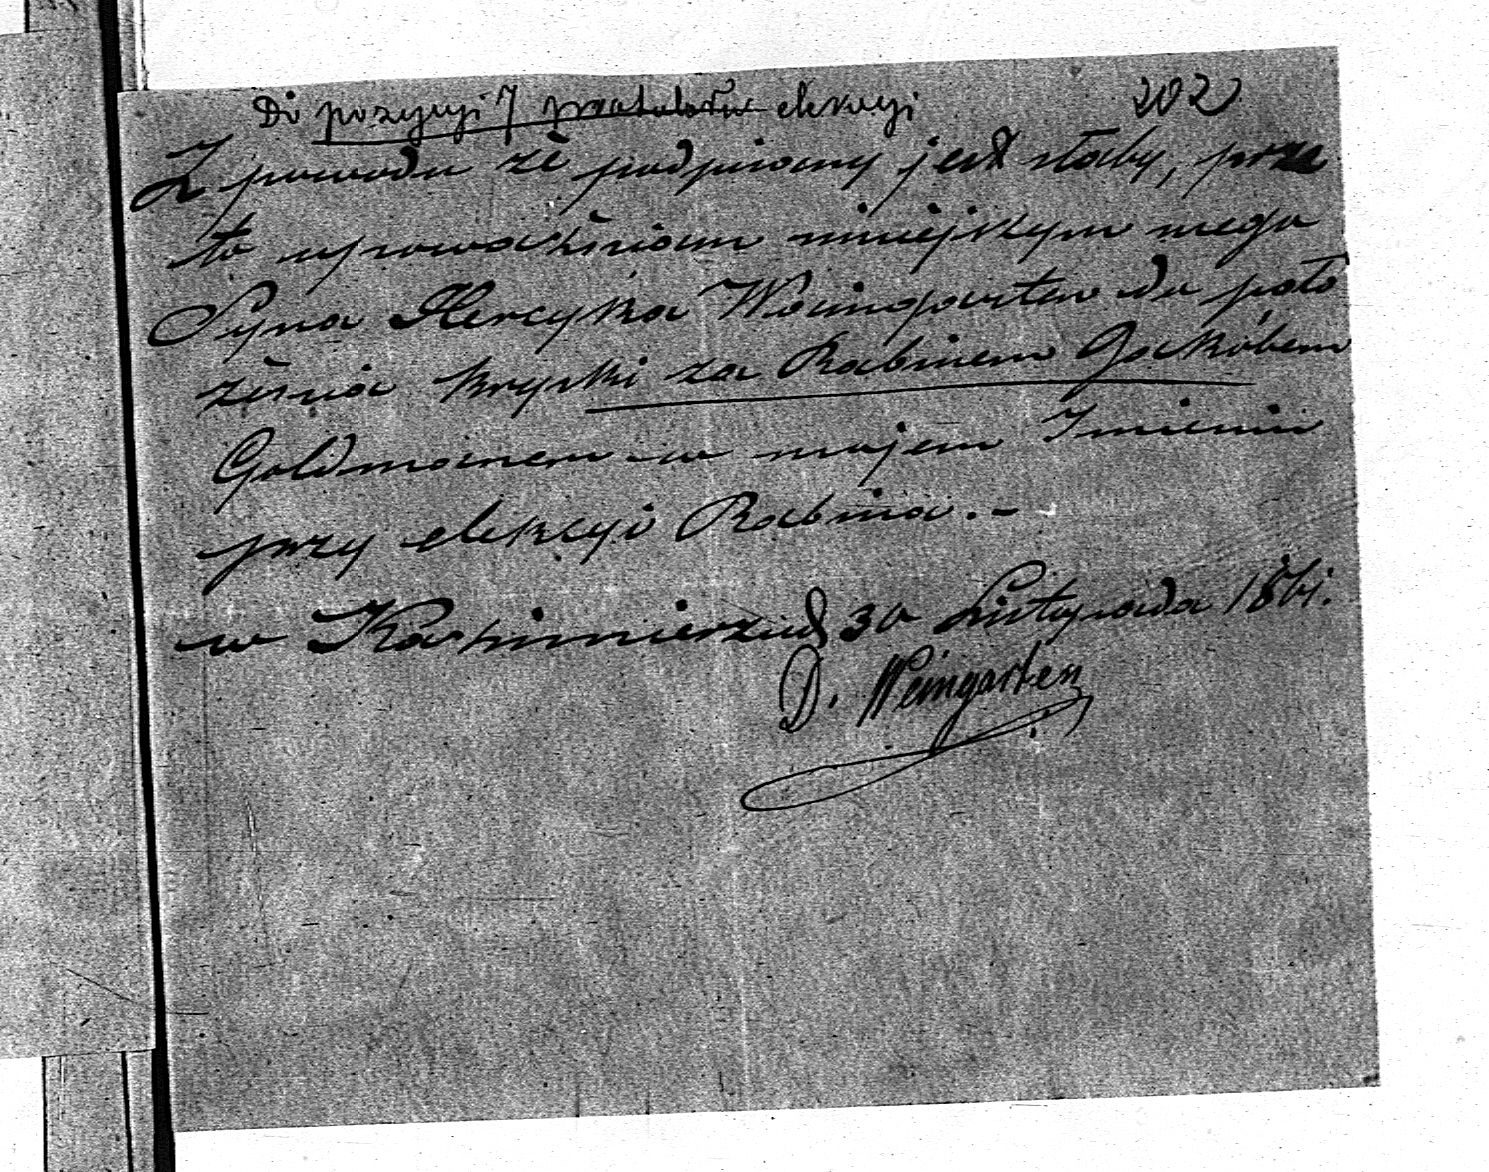 Do pozycyi 7 protokołu elekcyi 202
Z powodu że podpisany jest słaby, prze
to upoważniam niniejszym mego
Syna Hercyka Weingarten do poło
żenia kryski za Rabinem Jakóbem
Goldmanem w mojem Imieniu
przy elekcyi Rabina.-
w Kazimierzu d 30 Listopada 1861.
D. Weingarten